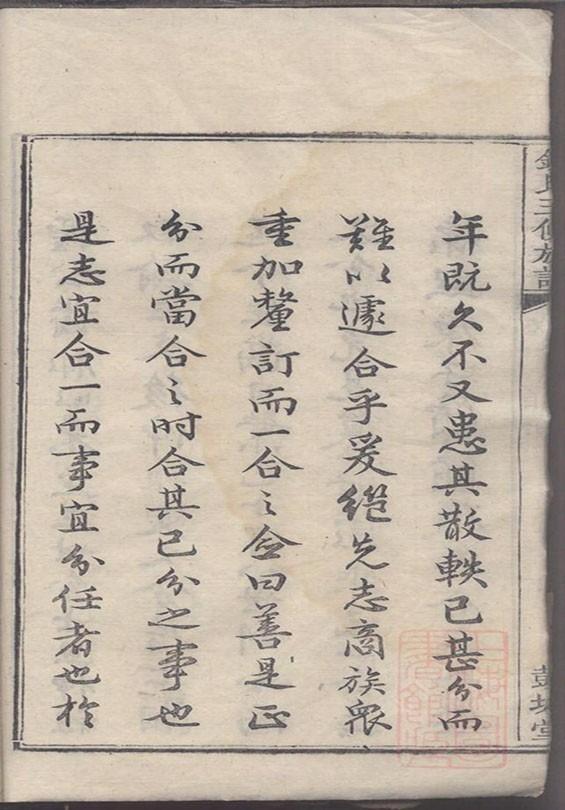 年既久不又患其散軼已甚分而
難以遽合乎爰繼先志商族眾
重加釐訂而一合之僉曰善是正
分而當合之时合其已分之事也
是志宜合一而事宜分任者也於
氏三修族譜
彭城堂